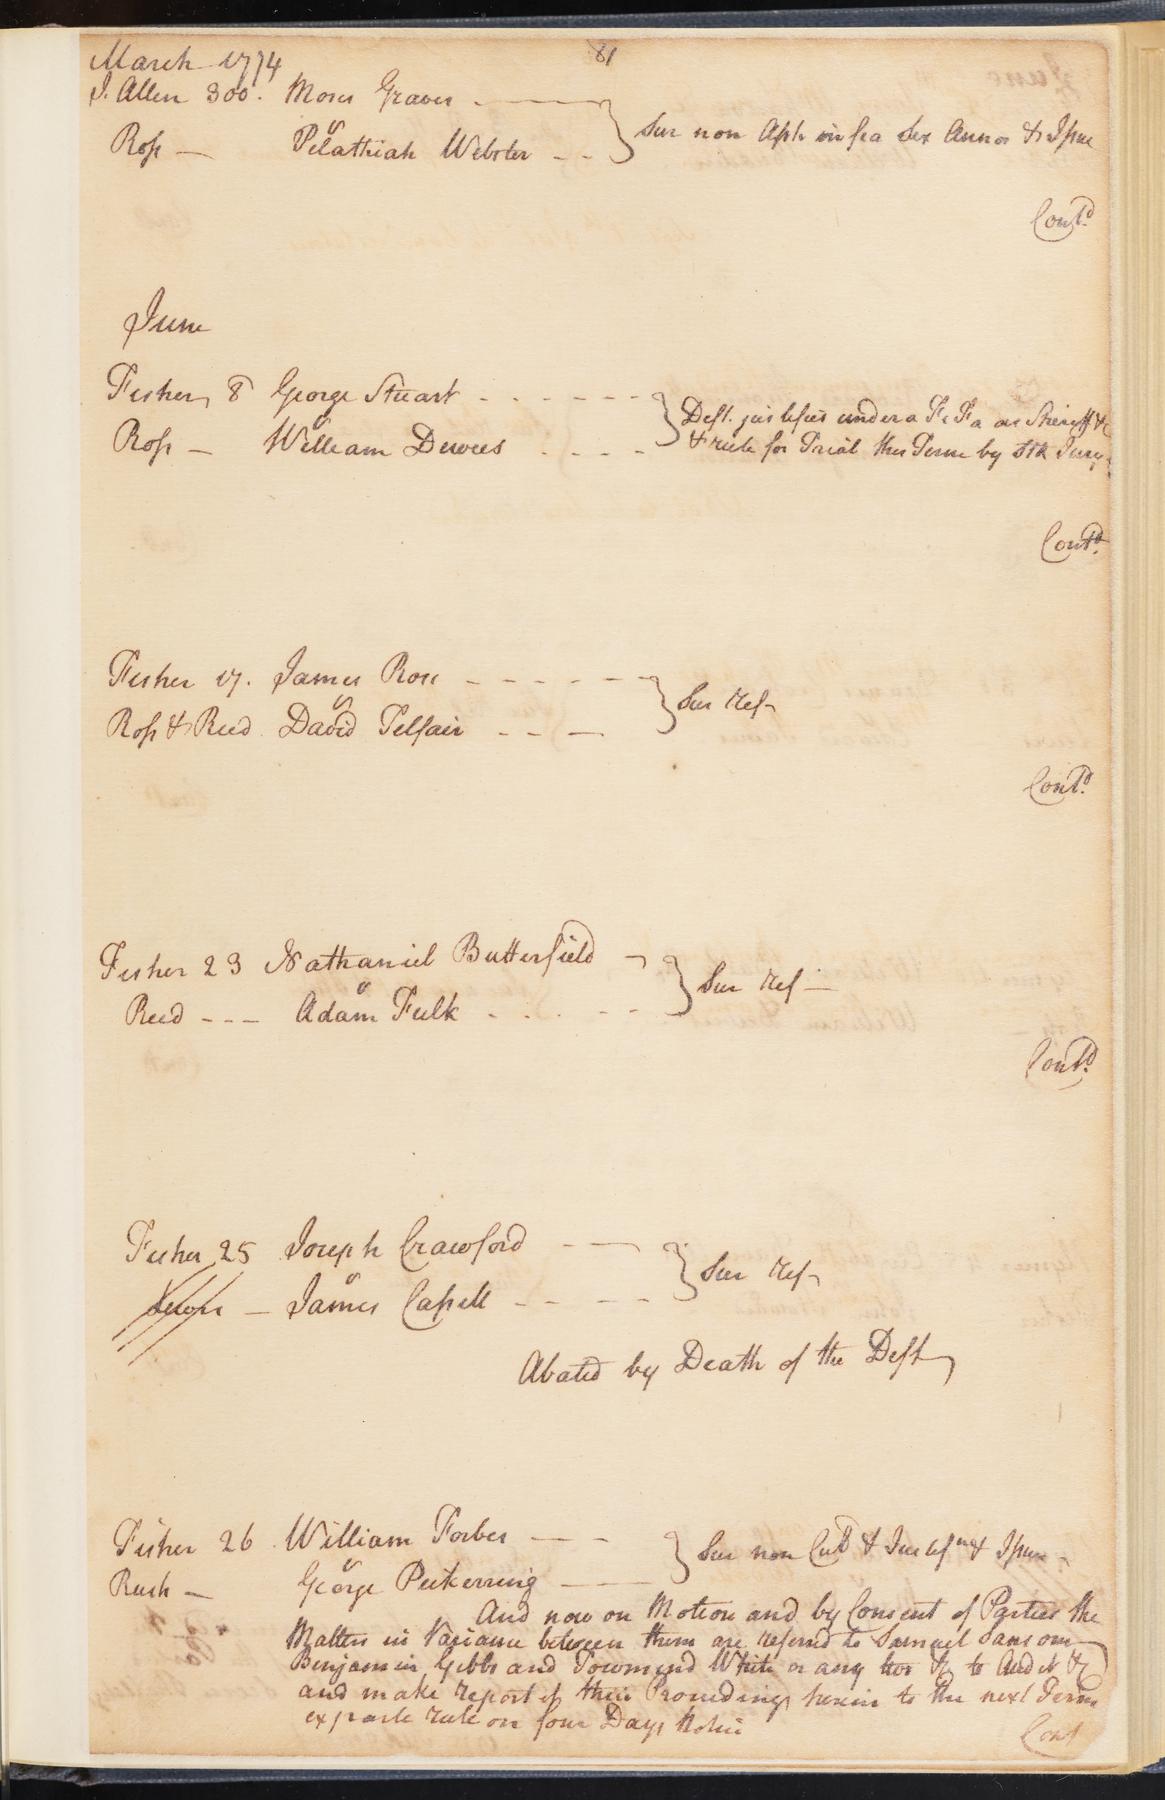 81
March 1774
J. Allen 300. Moses Graves
v
Ross — Pelathiah Webster } Sur non Asst infra Sex Annos & Issue
Contd.
June
Fisher 8 George Stuart
v
Ross — William Dewees } Deft. justifies under a Fi Fa as Sheriff &c
& rule for Trial this Term by Stk Jury
Contd.
Fisher 17. James Ross
v
Ross & Reed David Telfair } Sur ref
Contd.
Fisher 23 Nathaniel Butterfield
v
Reed --- Adam Fulk } Sur ref —
Contd.
Fisher 25 Joseph Crawford
v
— James Capell } Sur ref
Abated by Death of the Deft
Fisher 26 William Forbes
v
Rush — George Peckerring } Sur non Cul & Justifn & Issue
And now on Motion and by Consent of Parties the
Matters in Variance between them are referred to Samuel Sansom
Benjamin Gibbs and Townsend White or any two &c to Audit &c
and make report of their Proceedings herein to the next Term
exparte rule on four Days Notice
Cont